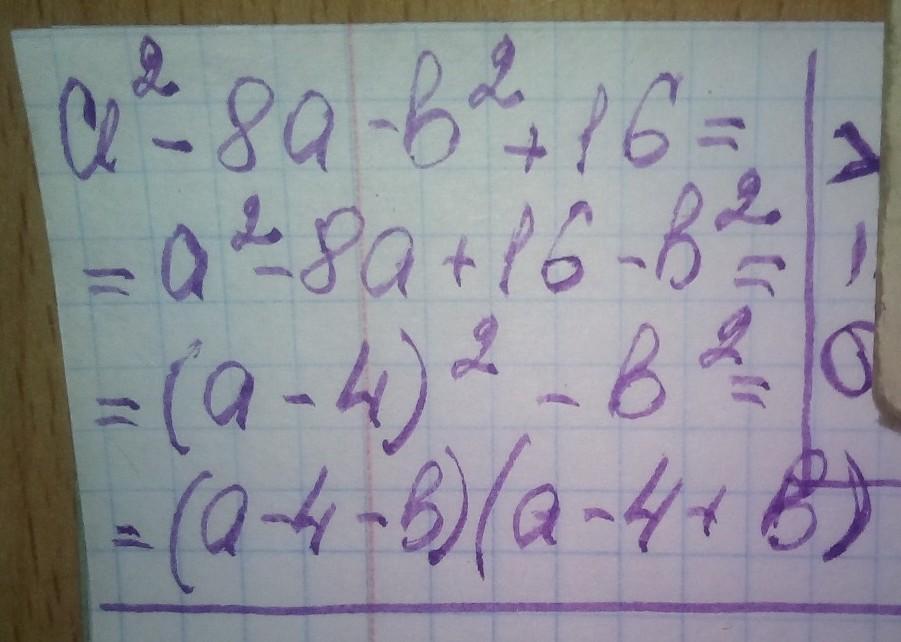 a² - 8a - b² + 16 =
= a² - 8a + 16 - b² =
= (a - 4)² - b² =
= (a - 4 - b)(a - 4 + b)